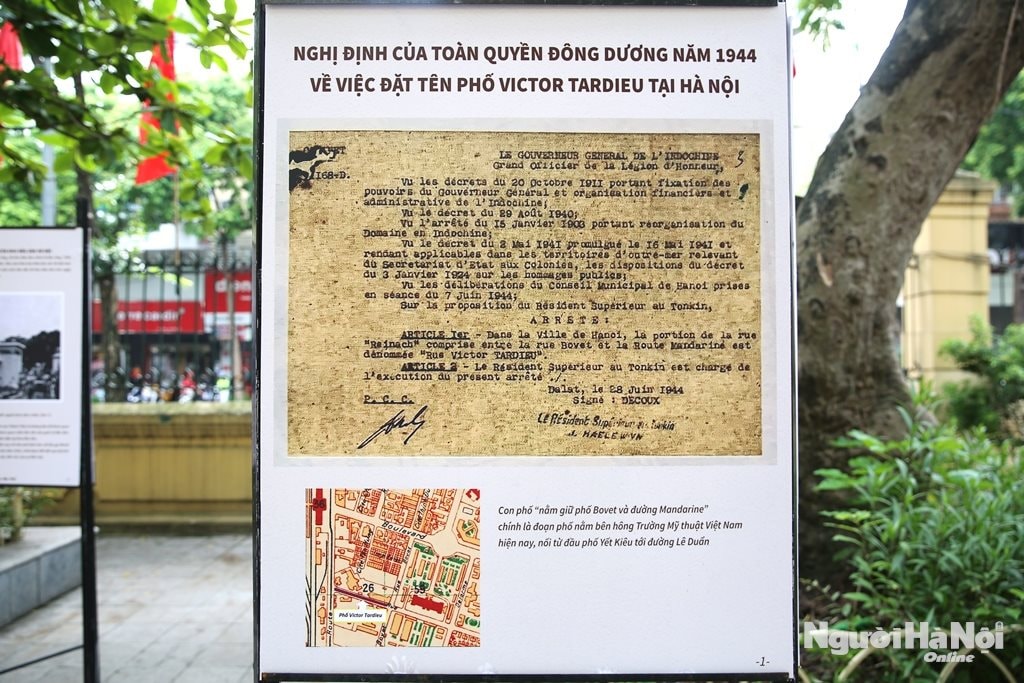 NGHỊ ĐỊNH CỦA TOÀN QUYỀN ĐÔNG DƯƠNG NĂM 1944
VỀ VIỆC ĐẶT TÊN PHỐ VICTOR TARDIEU TẠI HÀ NỘI
LE GOUVERNEUR GENERAL DE L'INDOCHINE
Grand Officier de la Légion d'Honneur,
Vu les décrets du 20 Octobre 1911 portant fixation des
pouvoirs du Gouverneur Général et organisation financière et
administrative de l'Indochine;
Vu le décret du 29 Août 1940;
Vu l'arrêté du 15 Janvier 1903 portant réorganisation du
Domaine en Indochine;
Vu le décret du 2 Mai 1941 promulgué le 16 Mai 1941 et
rendant applicables dans les territoires d'outre-mer relevant
du Secrétariat d'Etat aux Colonies, les dispositions du décret
du 3 janvier 1924 sur les hommages publics;
Vu les délibérations du Conseil Municipal de Hanoi prises
en séance du 7 Juin 1944;
Sur la proposition du Résident Supérieur au Tonkin,
ARRETE:
ARTICLE 1er - Dans la ville de Hanoi, la portion de la rue
"Reinach" comprise entre la rue Bovet et la Route Mandarine est
dénommée "Rue Victor TARDIEU".
ARTICLE 2 - Le Résident Supérieur au Tonkin est chargé de
l'exécution du présent arrêté ./.
Dalat, le 28 Juin 1944
Signé : DECOUX
P. C. C.
Le Résident Supérieur au Tonkin
J. HAELEWYN
Boulevard
26
55
Phố Victor Tardieu
Route
Con phố “nằm giữ phố Bovet và đường Mandarine”
chính là đoạn phố nằm bên hông Trường Mỹ thuật Việt Nam
hiện nay, nối từ đầu phố Yết Kiêu tới đường Lê Duẩn
-1-
NgườiHàNội
Online